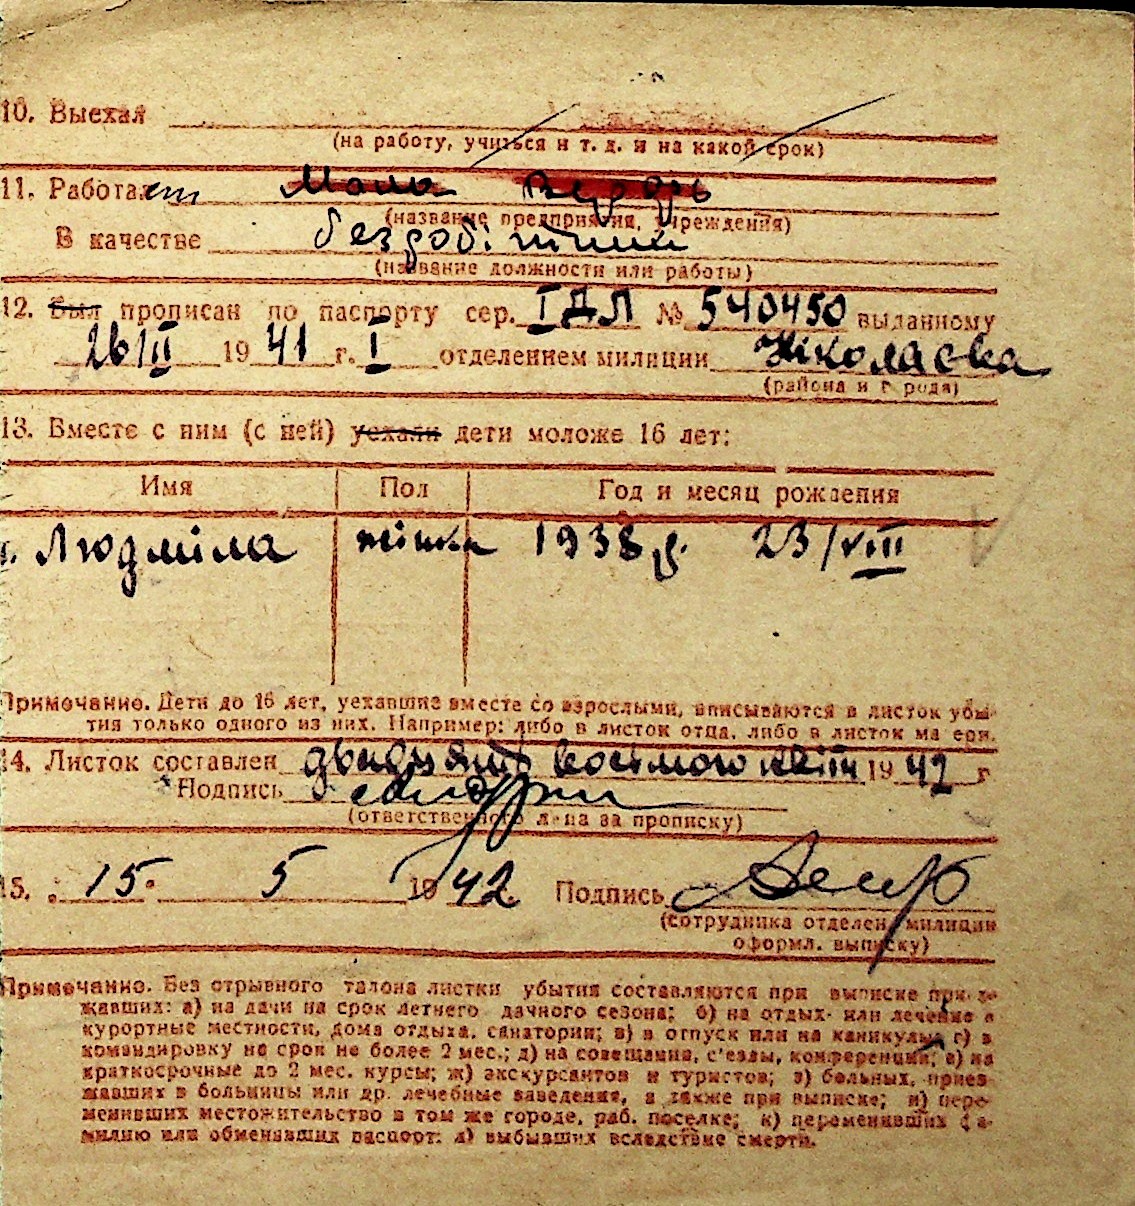 10. Выехал
(на работу, учиться и т. д. и на какой срок)
11. Работает Мала Верфь
(название предприятия, учреждения)
В качестве безробітниі
(название должности или работы)
12. Был прописан по паспорту сер. IДЛ № 540450 выданному
26/II 1941 г. I отделением милиции Ніколаева
(района и города)
13. Вместе с ним (с ней) уехали дети моложе 16 лет:
Имя Пол Год и месяц рождения
1. Людміла жінка 1938 р. 23/VIII
Примечание. Дети до 16 лет, уехавшие вместе со взрослыми, вписываются в листок убы-
тия только одного из них. Например: либо в листок отца, либо в листок матери.
14. Листок составлен двадцять восьмого 1942 г.
Подпись
(ответственного лица за прописку)
15. 15. 5 1942. Подпись
(сотрудника отделен. милиции
оформл. выписку)
Примечание. Без отрывного талона листки убытия составляются при выписке приез-
жавших: а) на дачи на срок летнего дачного сезона; б) на отдых или лечение в
курортные местности, дома отдыха, санатории; в) в отпуск или на каникулы; г) в
командировку на срок не более 2 мес.; д) на совещания, с'езды, конференции; е) на
краткосрочные до 2 мес. курсы; ж) экскурсантов и туристов; з) больных, приез-
жавших в больницы или др. лечебные заведения, а также при выписке; и) пере-
менивших местожительство в том же городе, раб. поселке; к) переменивших фа-
милию или обменявших паспорт; л) выбывших вследствие смерти.